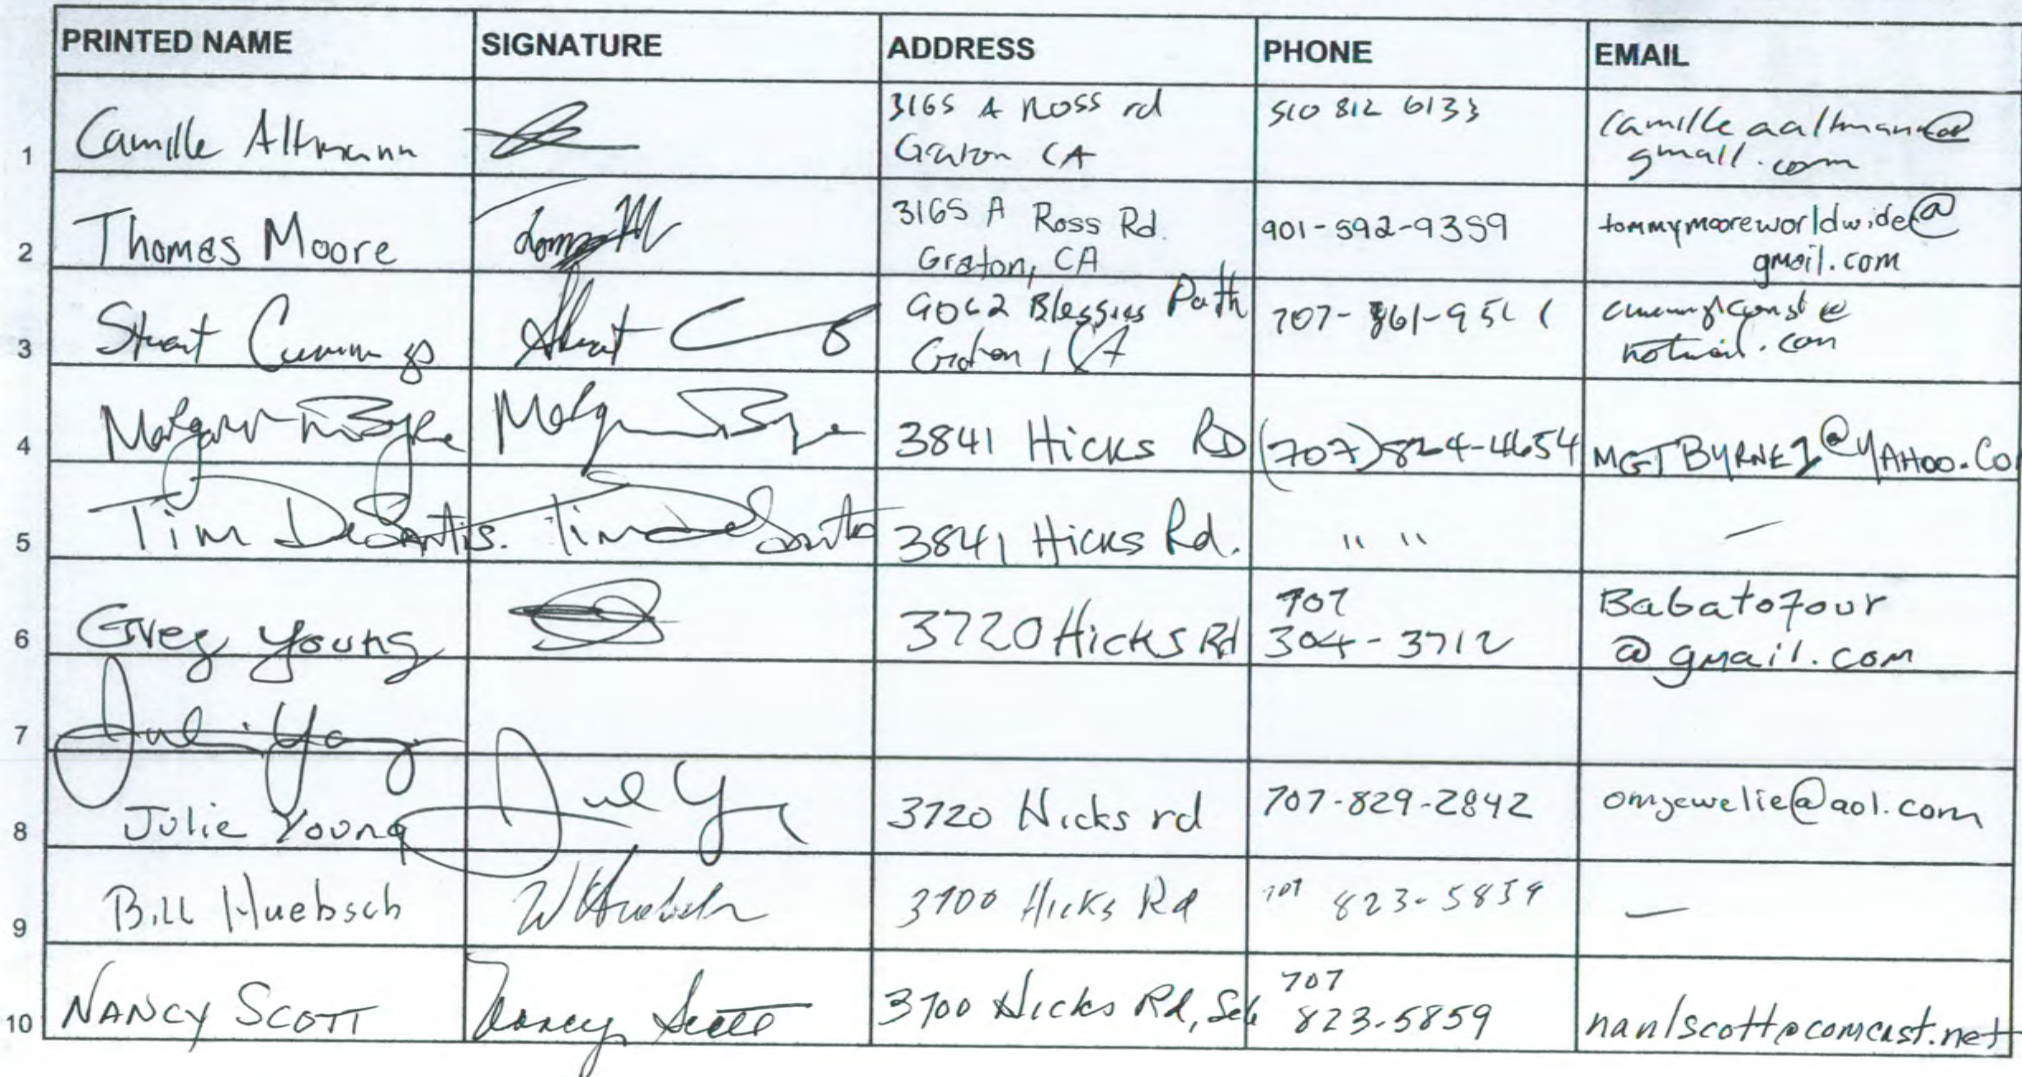 PRINTED NAME SIGNATURE ADDRESS PHONE EMAIL
1 Camille Altmann 3165 A Ross rd 510 812 6133 camilleaaltmann@
Graton CA gmail.com
2 Thomas Moore 3165 A Ross Rd. 901-592-9359 tommymooreworldwide@
Graton, CA gmail.com
3 Stuart Cummings Stuart Path 707-
Graton, CA hotmail.com
4 Margaret M Byrne 3841 Hicks RD (707)824-4654 MGTBYRNE1@YAHOO.CO
5 Tim DeSantis. Tim DeSantis 3841 Hicks Rd. " " —
6 Greg Young 3720 Hicks Rd 707 Babatofour
304-3712 @gmail.com
7 Juli Young
8 Julie Young Jul Y 3720 Hicks rd 707-829-2842 omjewelie@aol.com
9 Bill Huebsch W Huebsch 3700 Hicks Rd 707 823-5859 —
10 NANCY SCOTT Nancy Scott 3700 Hicks Rd, Seb 707
823-5859 nanlscott@comcast.net